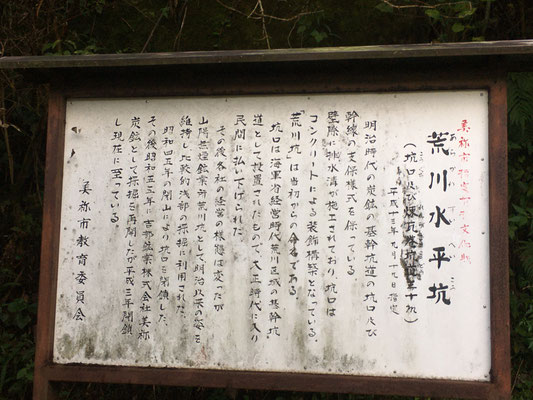 美祢市指定有形文化財
荒川水平坑
あらかわすいへいこう
(坑口及び煉瓦巻坑道三十m)
平成十三年九月十九日 指定
明治時代の炭鉱の基幹坑道の坑口及び
幹線の支保様式を保っている
壁際に排水溝が施工されており、坑口は
コンクリートによる装飾構築となっている。
「荒川坑」は当初からの命名である。
坑口は海軍省経営時代荒川区域の基幹坑
道として設置されたもので、大正時代に入り
民間に払い下げされた
その後各社の経営の様態は変ったが
山陽無煙鉱業所荒川坑として、明治以来の姿を
維持し比較的浅部の採掘に利用された。
昭和四五年の閉山により坑口を閉鎖した
その後昭和五三年に吉部鉱業株式会社美祢
炭鉱として採掘を再開したが平成三年閉鎖
し現在に至っている。
美祢市教育委員会